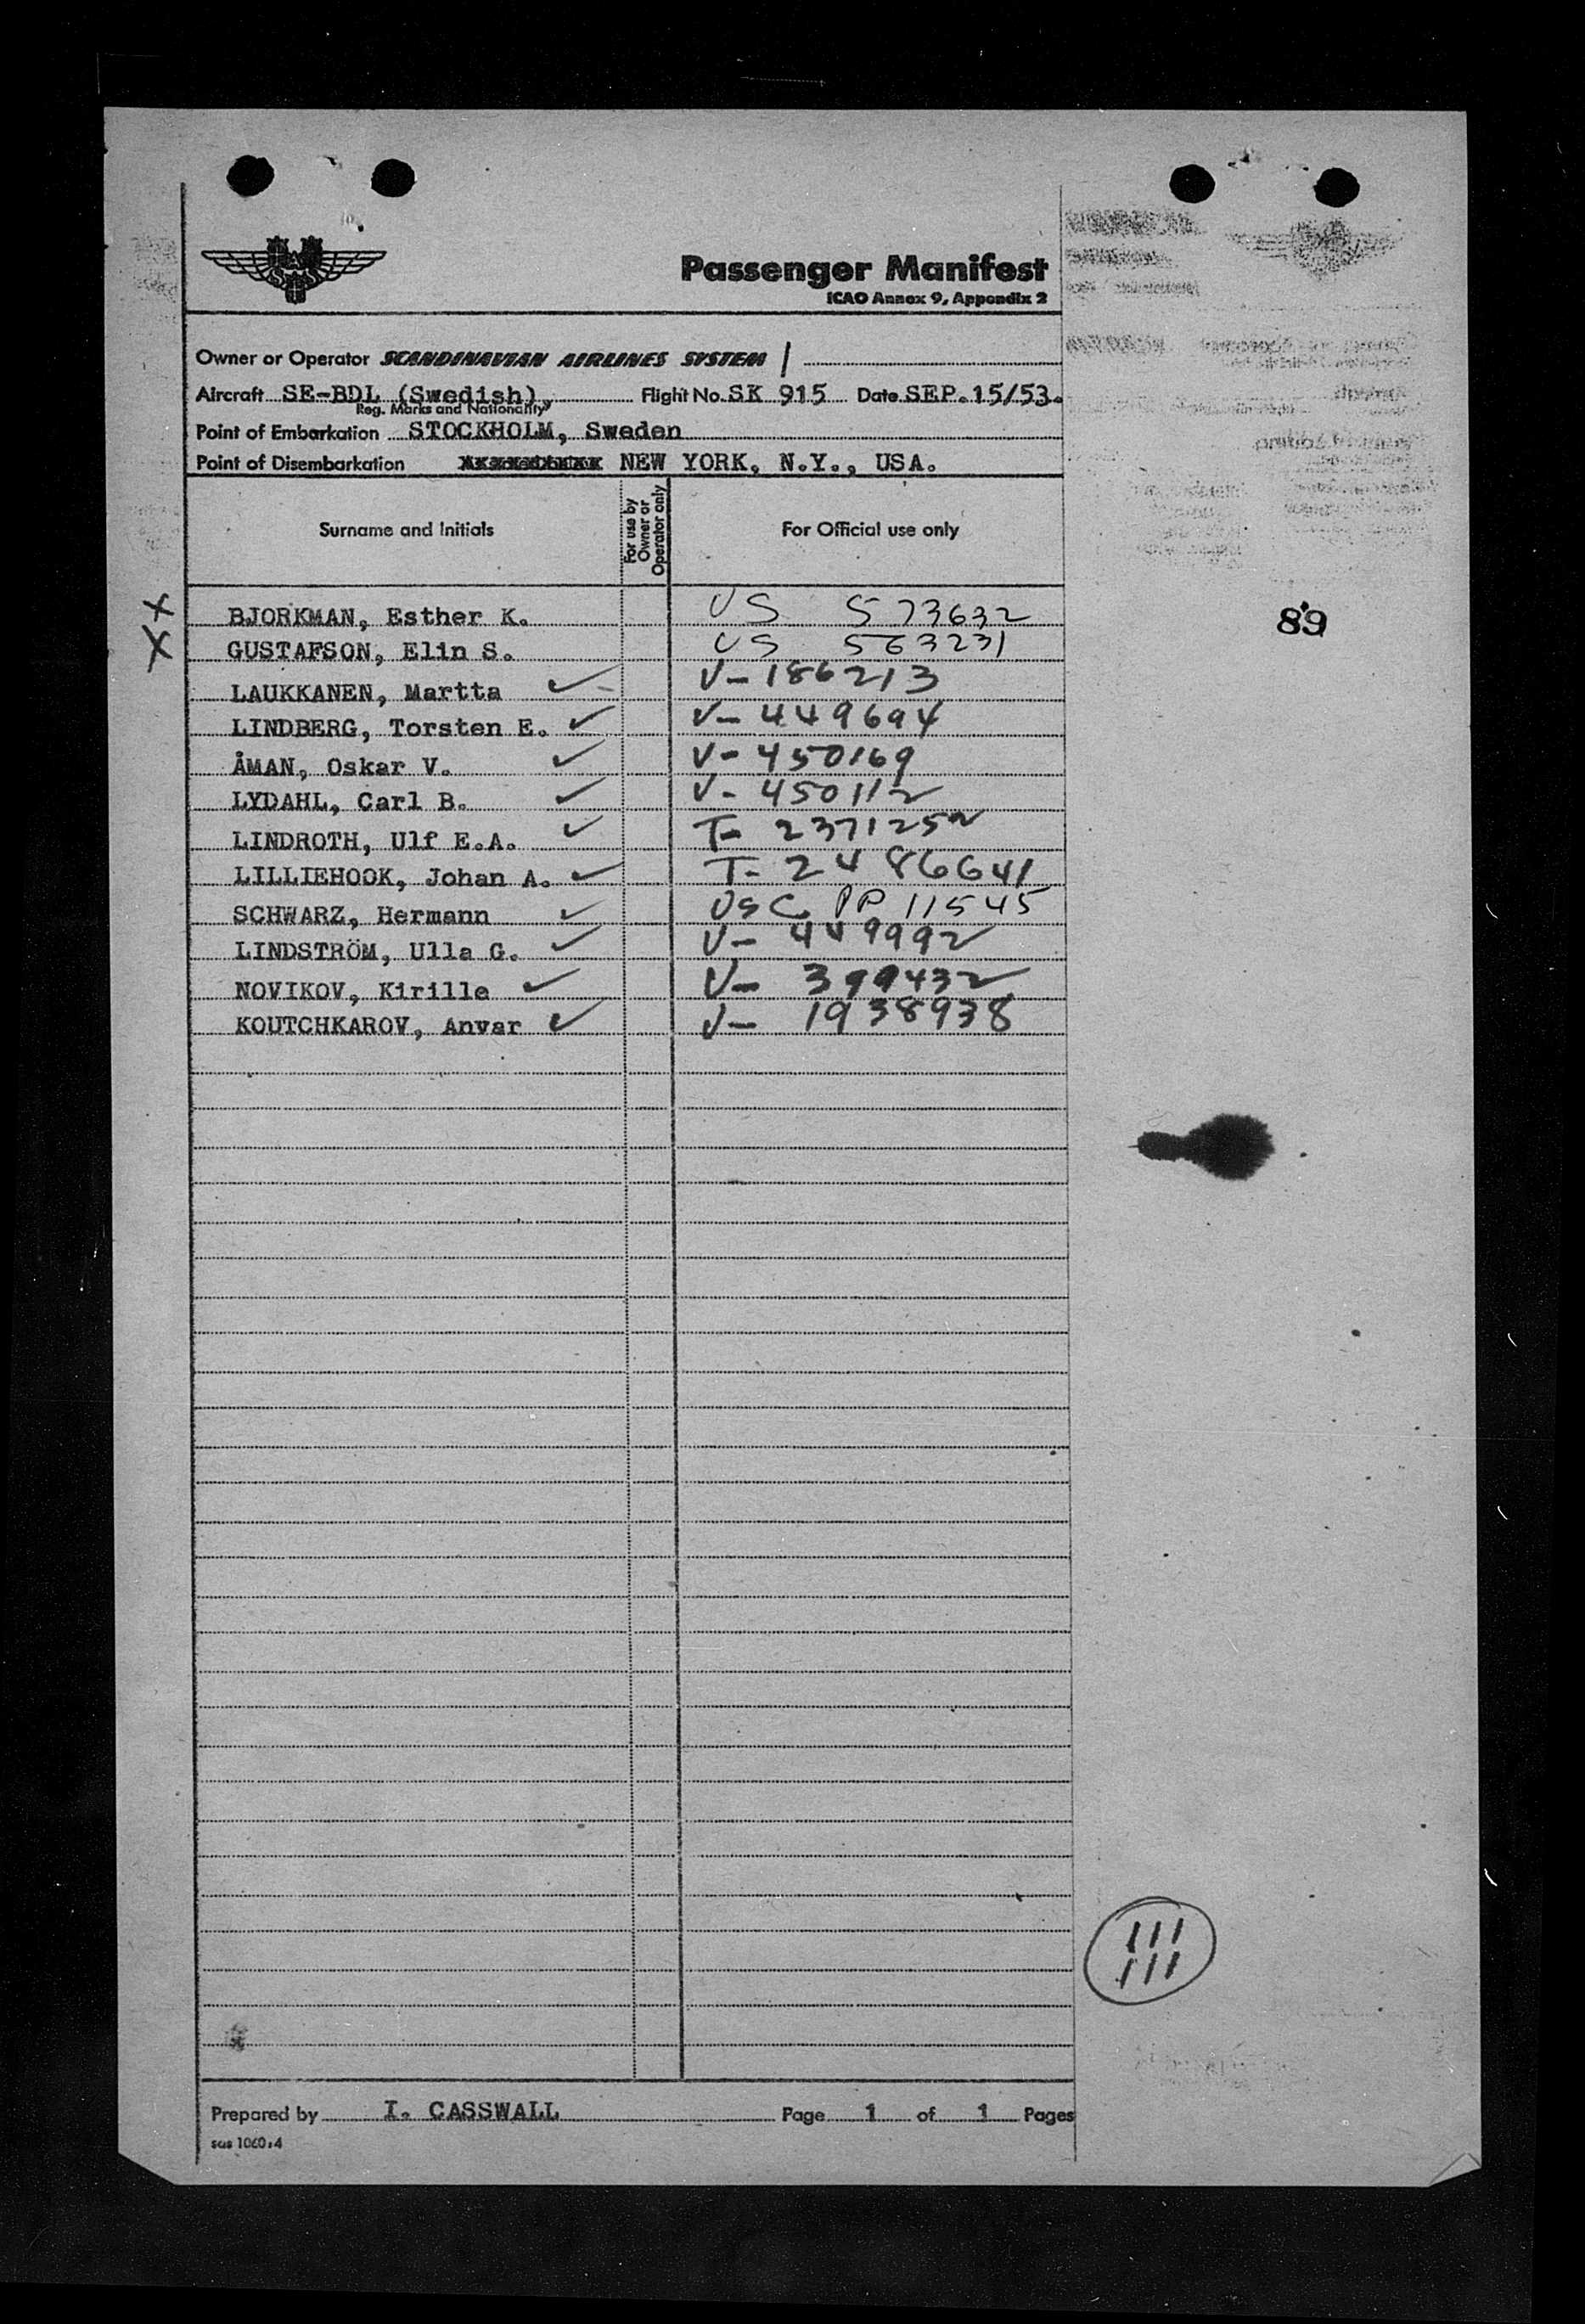 SAS
Passenger Manifest
ICAO Annex 9, Appendix 2
Owner or Operator SCANDINAVIAN AIRLINES SYSTEM /
Aircraft SE-BDL (Swedish), Flight No. SK 915 Date SEP. 15/53.
Reg. Marks and Nationality
Point of Embarkation STOCKHOLM, Sweden
Point of Disembarkation NEW YORK, N.Y., USA.
Surname and Initials For use by Owner or Operator only For Official use only
X BJORKMAN, Esther K. US 573632 89
X GUSTAFSON, Elin S. US 563231
LAUKKANEN, Martta ✓ V-186213
LINDBERG, Torsten E. ✓ V-449694
ÅMAN, Oskar V. ✓ V-450169
LYDAHL, Carl B. ✓ V-450112
LINDROTH, Ulf E.A. ✓ T-2371252
LILLIEHOOK, Johan A. ✓ T-2486641
SCHWARZ, Hermann ✓ USC PP 11545
LINDSTRÖM, Ulla G. ✓ V-449992
NOVIKOV, Kirille ✓ V-399432
KOUTCHKAROV, Anvar ✓ V-1938938
111
111
Prepared by I. CASSWALL Page 1 of 1 Pages
sas 1060:4